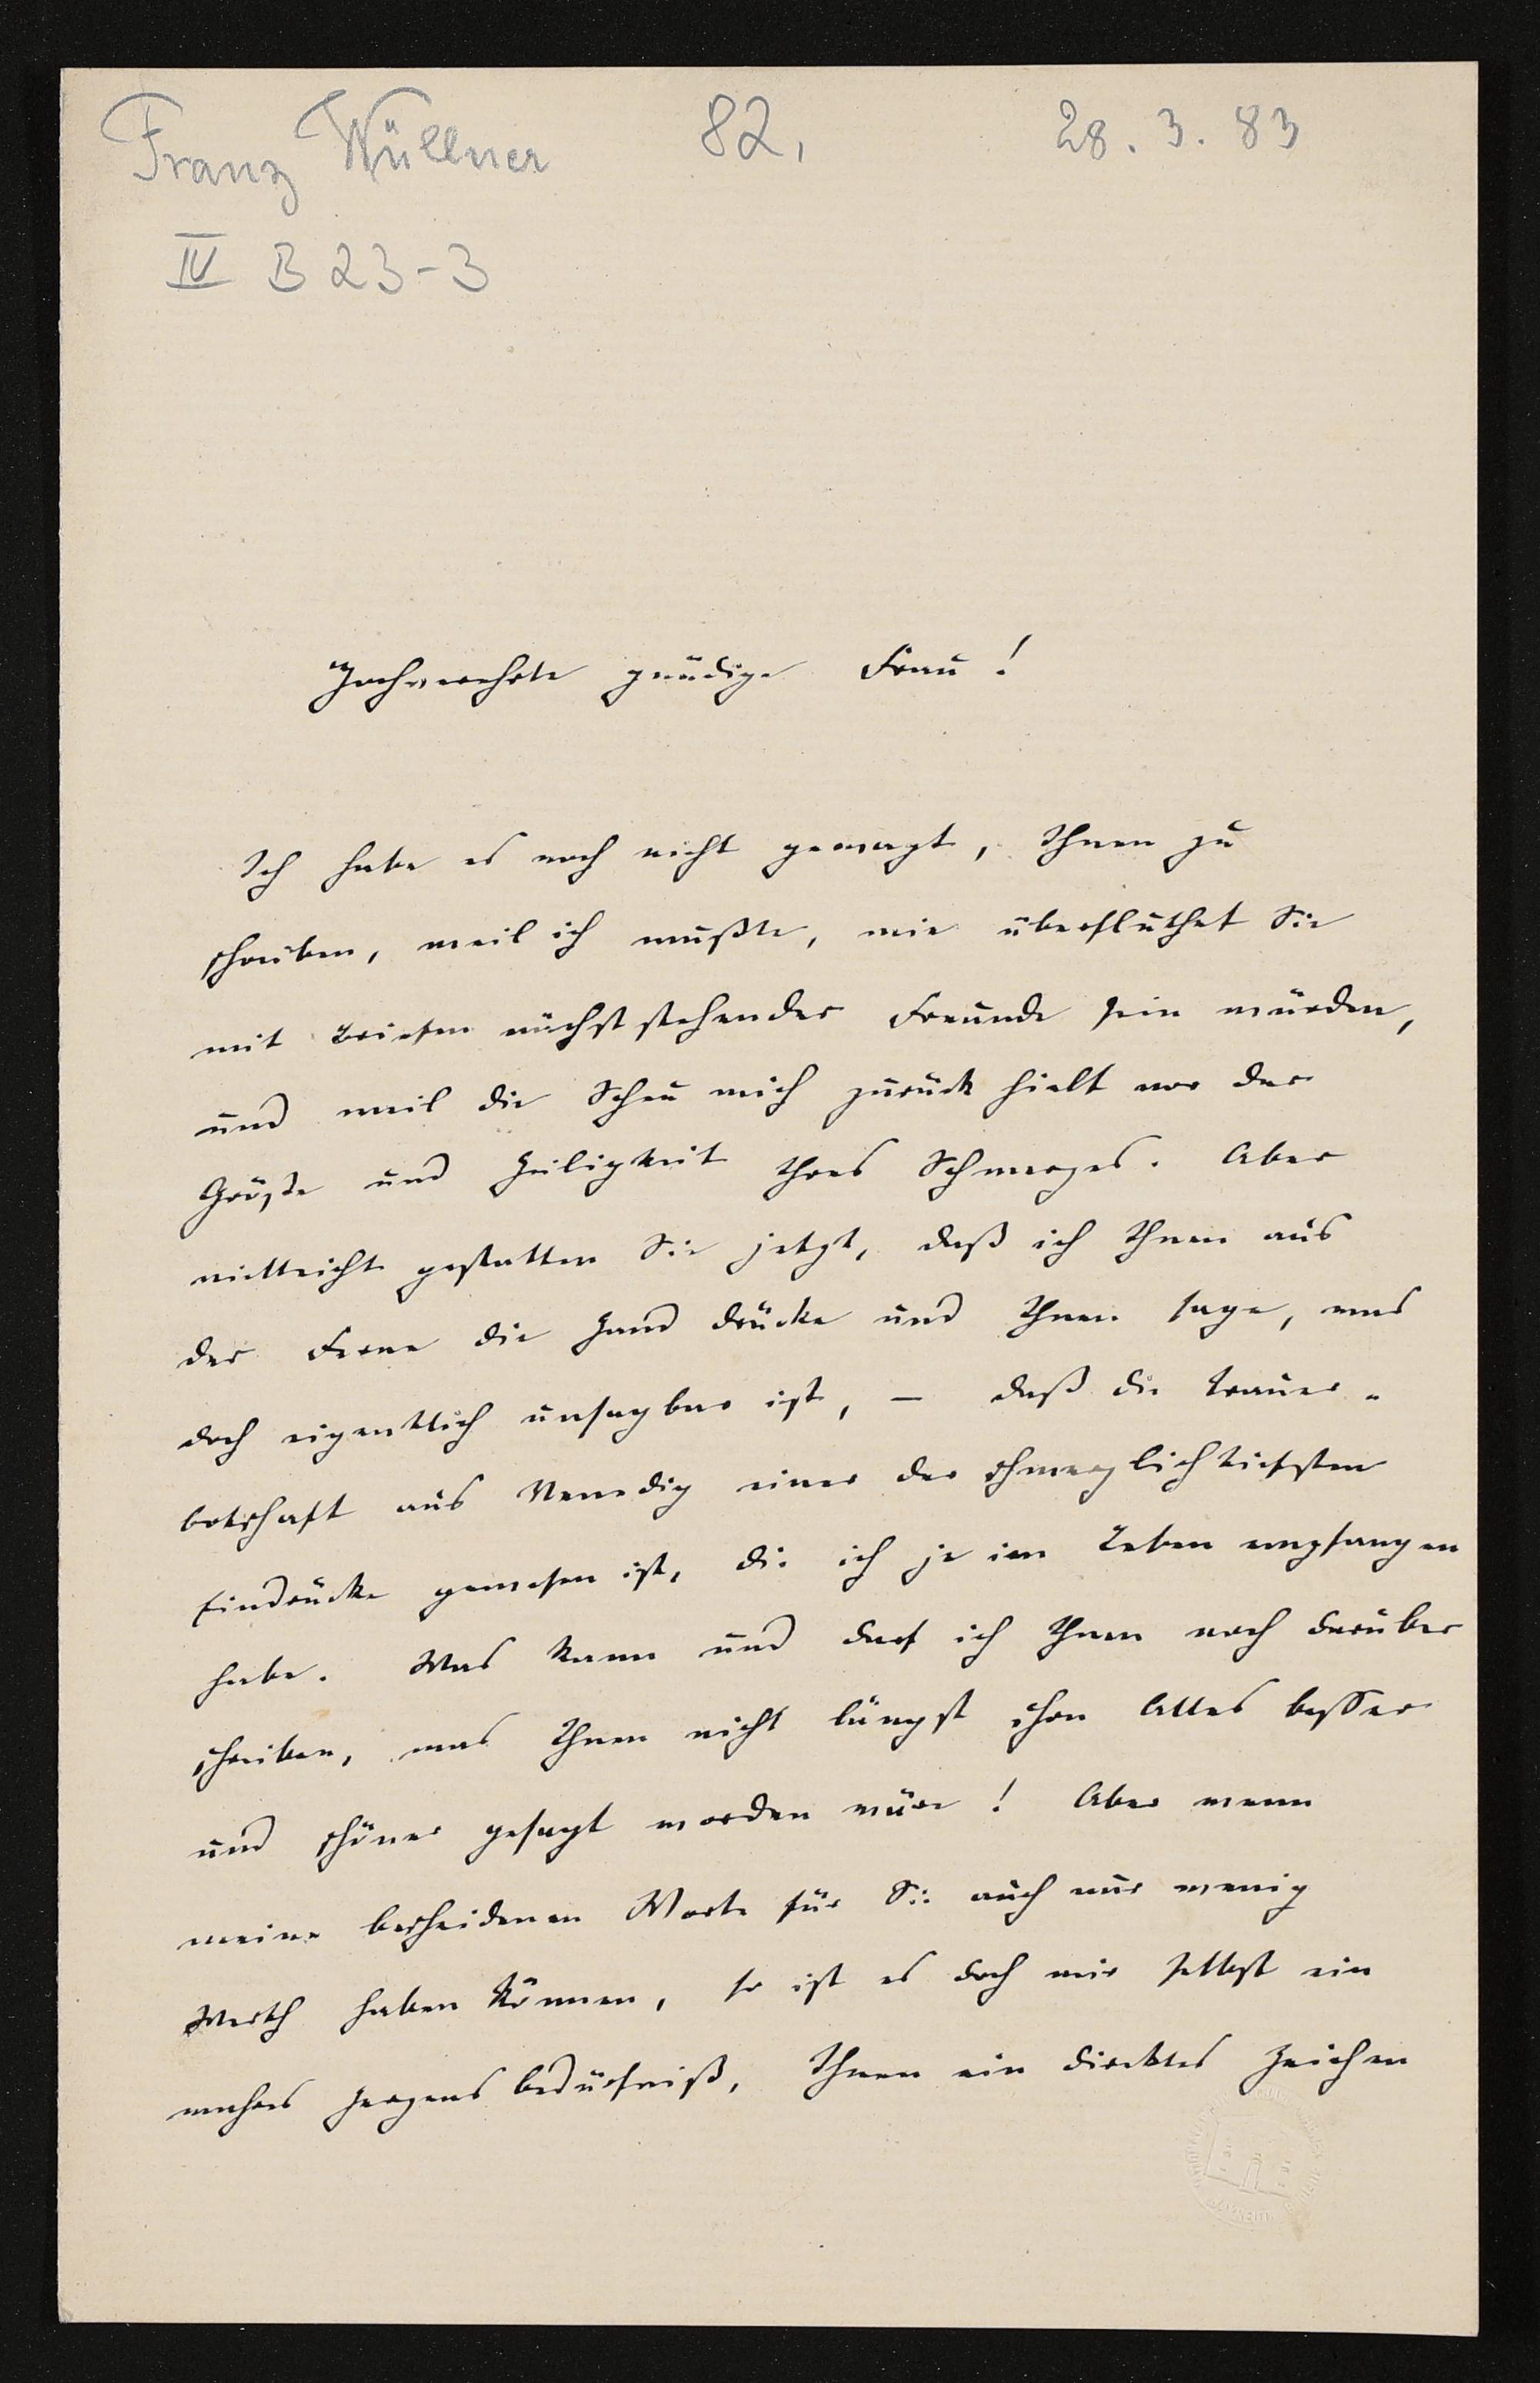 Franz Wüllner 82, 28. 3. 83
IV B 23-3
Hochverehrte gnädige Frau!
Ich habe es noch nicht gewagt, Ihnen zu
schreiben, weil ich wußte, wie überfluthet Sie
mit Briefen nächststehender Freunde sein würden,
und weil die Scheu mich zurück hielt vor der
Größe und Heiligkeit Ihres Schmerzes. Aber
vielleicht gestatten Sie jetzt, daß ich Ihnen aus
der Ferne die Hand drücke und Ihnen sage, was
doch eigentlich unsagbar ist, — daß die Trauer-
botschaft aus Venedig einer der schmerzlich tiefsten
Eindrücke gewesen ist, die ich je im Leben empfangen
habe. Was kann und darf ich Ihnen noch darüber
schreiben, was Ihnen nicht längst schon Alles besser
und schöner gesagt worden wäre! Aber wenn
meine bescheidenen Worte für Sie auch nur wenig
Werth haben können, so ist es doch mir selbst ein
wahres Herzensbedürfniß, Ihnen ein direktes Zeichen